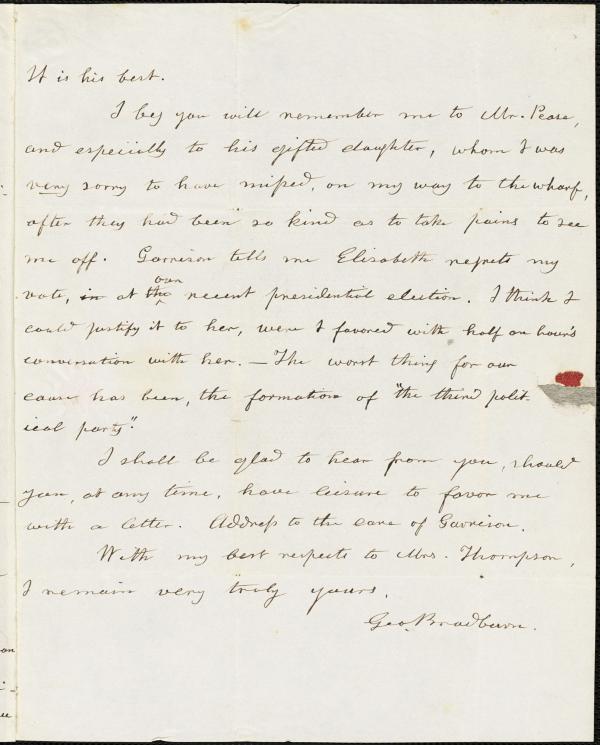 It is his best.
I beg you will remember me to Mr. Pease,
and especiilly to his gifted daughter, whom I was
very sorry to have missed, on my way to the wharf,
after they had been so kind as to take pains to see
me off. Garrison tells me Elizabeth regrets my
our
vote, in at the recent presidential election. I think I
could justify it to her, were I favored with half an hour's
conversation with her. — The worst thing for our
cause has been, the formation of "the third polit-
ical party".
I shall be glad to hear from you, should
you, at any time, have leisure to favor me
with a letter. Address to the care of Garrison.
With my best respects to Mrs. Thompson,
I remain very truly yours,
Geo. Bradburn.